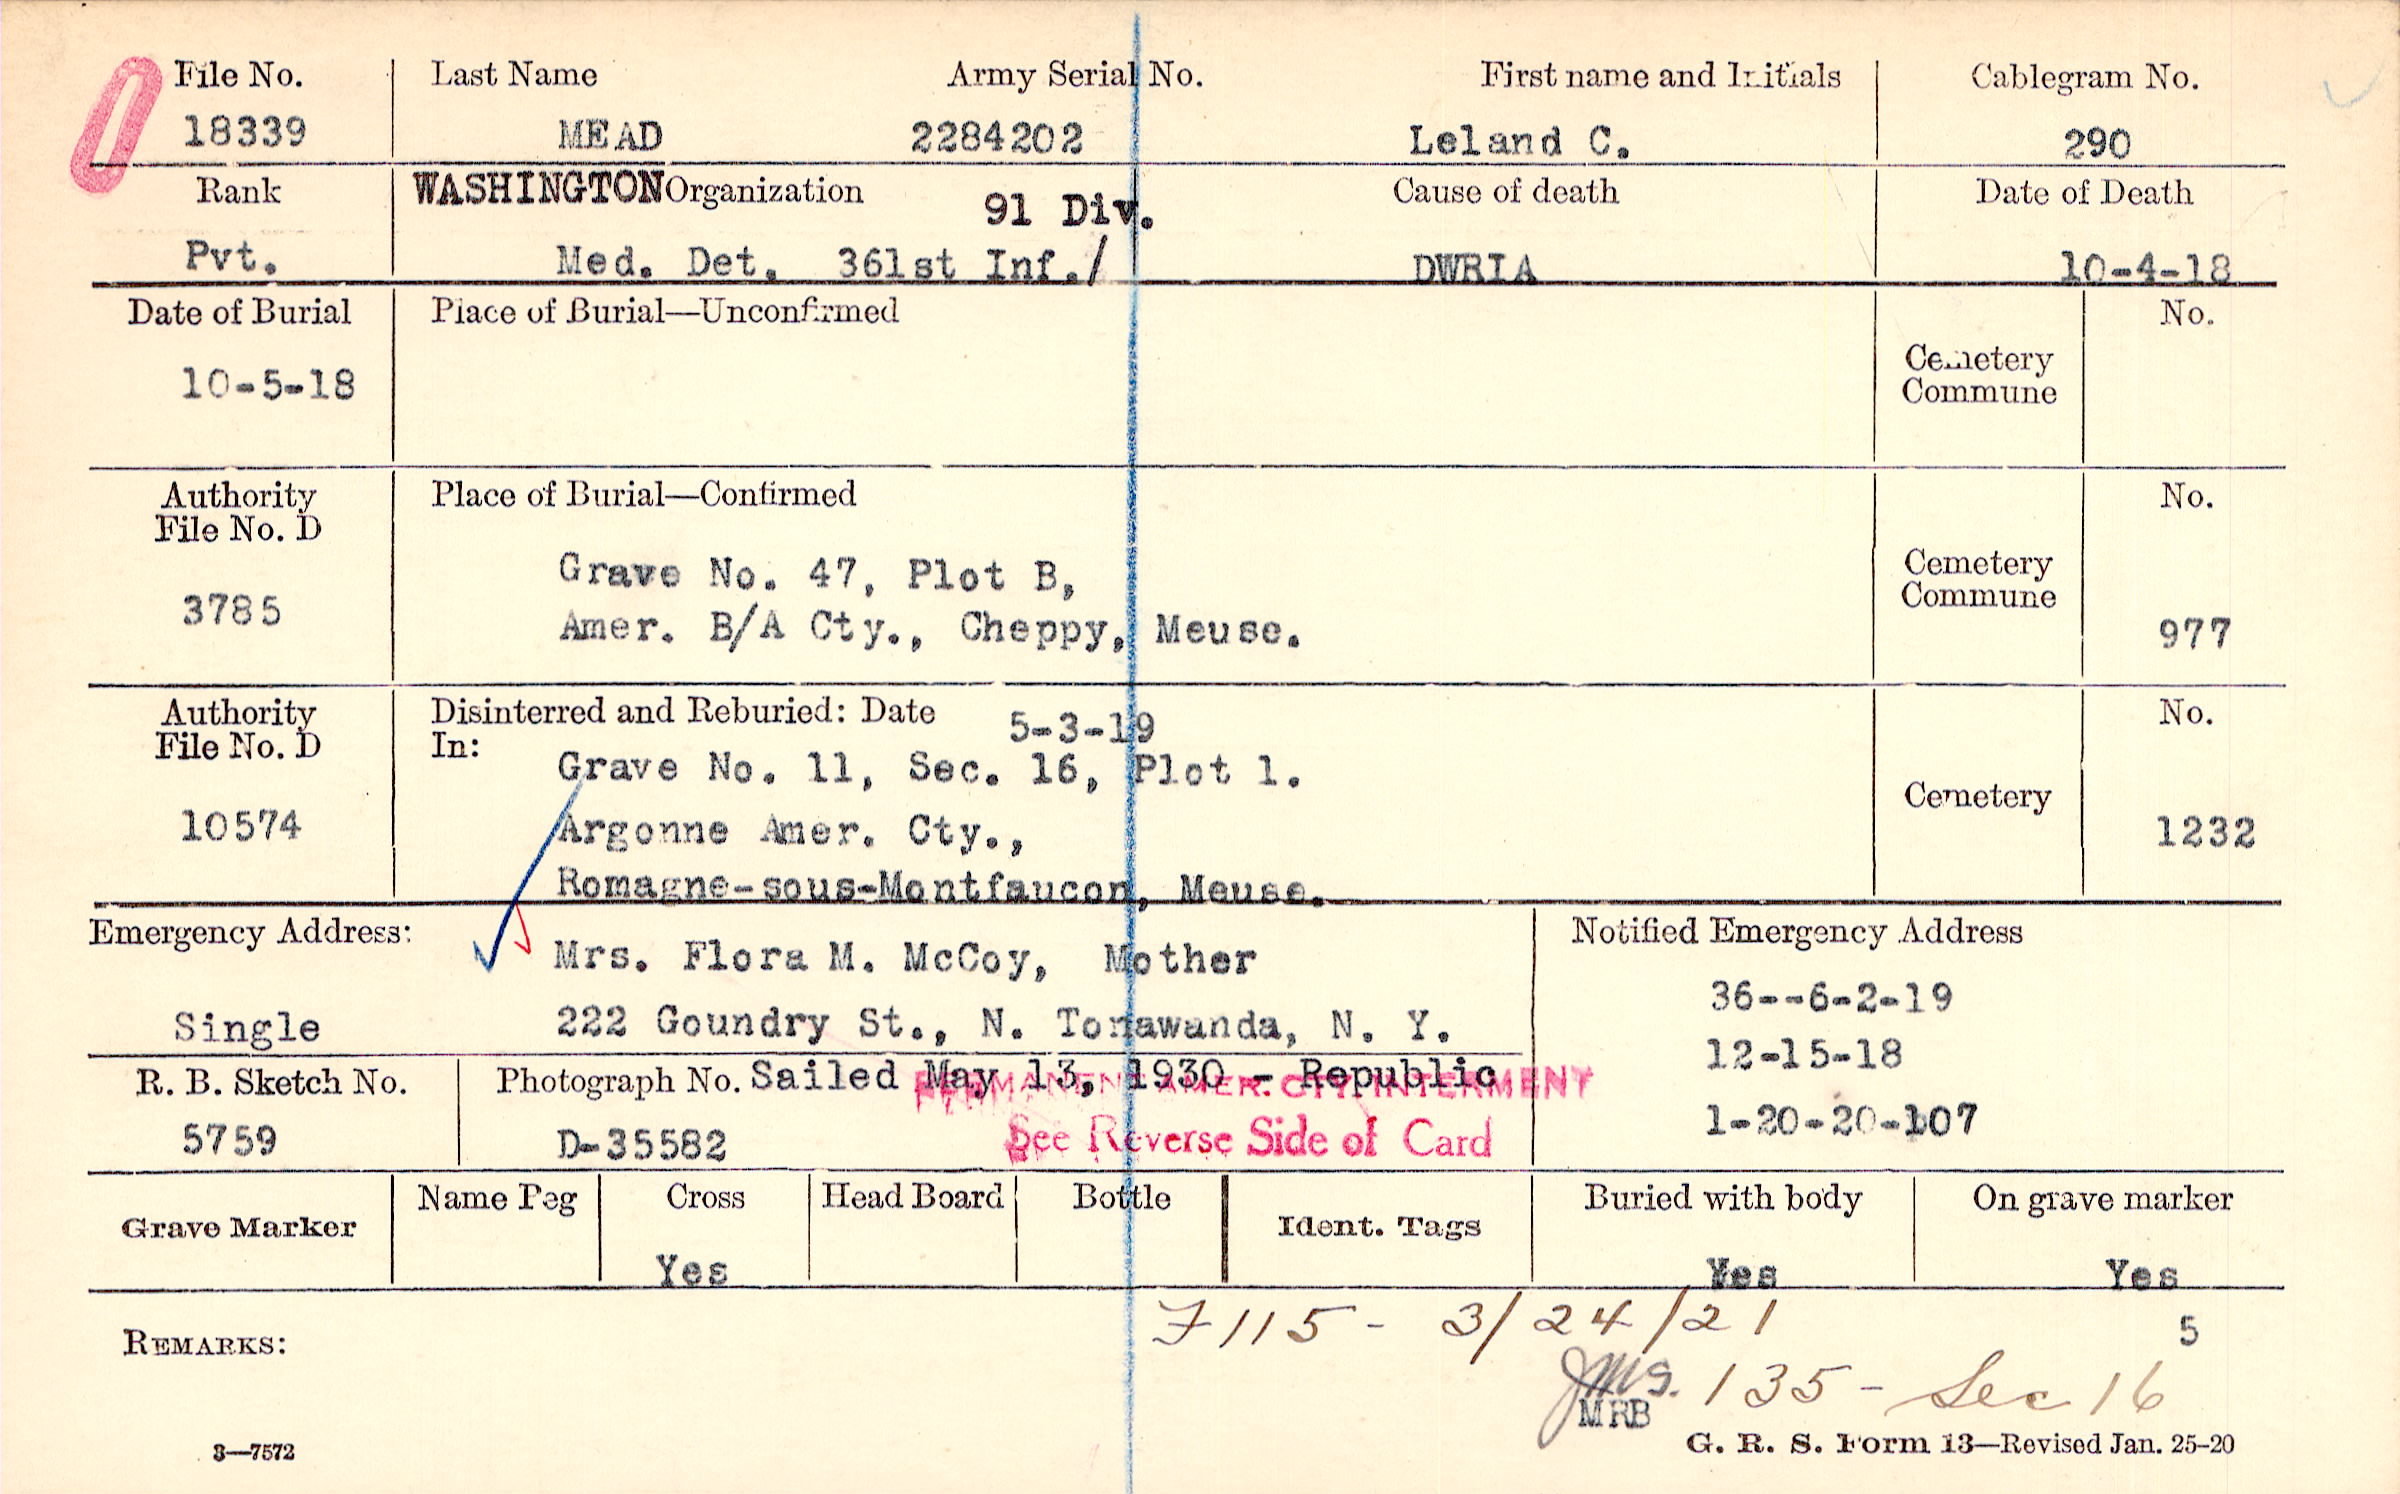 File No. Last Name Army Serial No. First name and Initials Cablegram No.
18339 MEAD 2284202 Leland C. 290
Rank WASHINGTON Organization 91 Div. Cause of death Date of Death
Pvt. Med. Det. 361st Inf./ DWRIA 10-4-18
Date of Burial Place of Burial—Unconfirmed No.
10-5-18 Cemetery
Commune
Authority Place of Burial—Confirmed No.
File No. D
Grave No. 47, Plot B, Cemetery
3785 Commune
Amer. B/A Cty., Cheppy, Meuse. 977
Authority Disinterred and Reburied: Date 5-3-19 No.
File No. D In:
Grave No. 11, Sec. 16, Plot 1.
10574 Argonne Amer. Cty., Cemetery 1232
Romagne-sous-Montfaucon, Meuse.
Emergency Address: Notified Emergency Address
Mrs. Flora M. McCoy, Mother 36--6-2-19
Single 222 Goundry St., N. Tonawanda, N. Y. 12-15-18
R. B. Sketch No. Photograph No. Sailed May 13, 1930 - Republic
PERMANENT AMER. CTY. INTERMENT
5759 D-35582 See Reverse Side of Card 1-20-20-107
Grave Marker Name Peg Cross Head Board Bottle Ident. Tags Buried with body On grave marker
Yes Yes Yes
REMARKS: F115 - 3/24/21 5
JMS. 135 - Sec 16
MRB
3—7572 G. R. S. Form 13—Revised Jan. 25-20